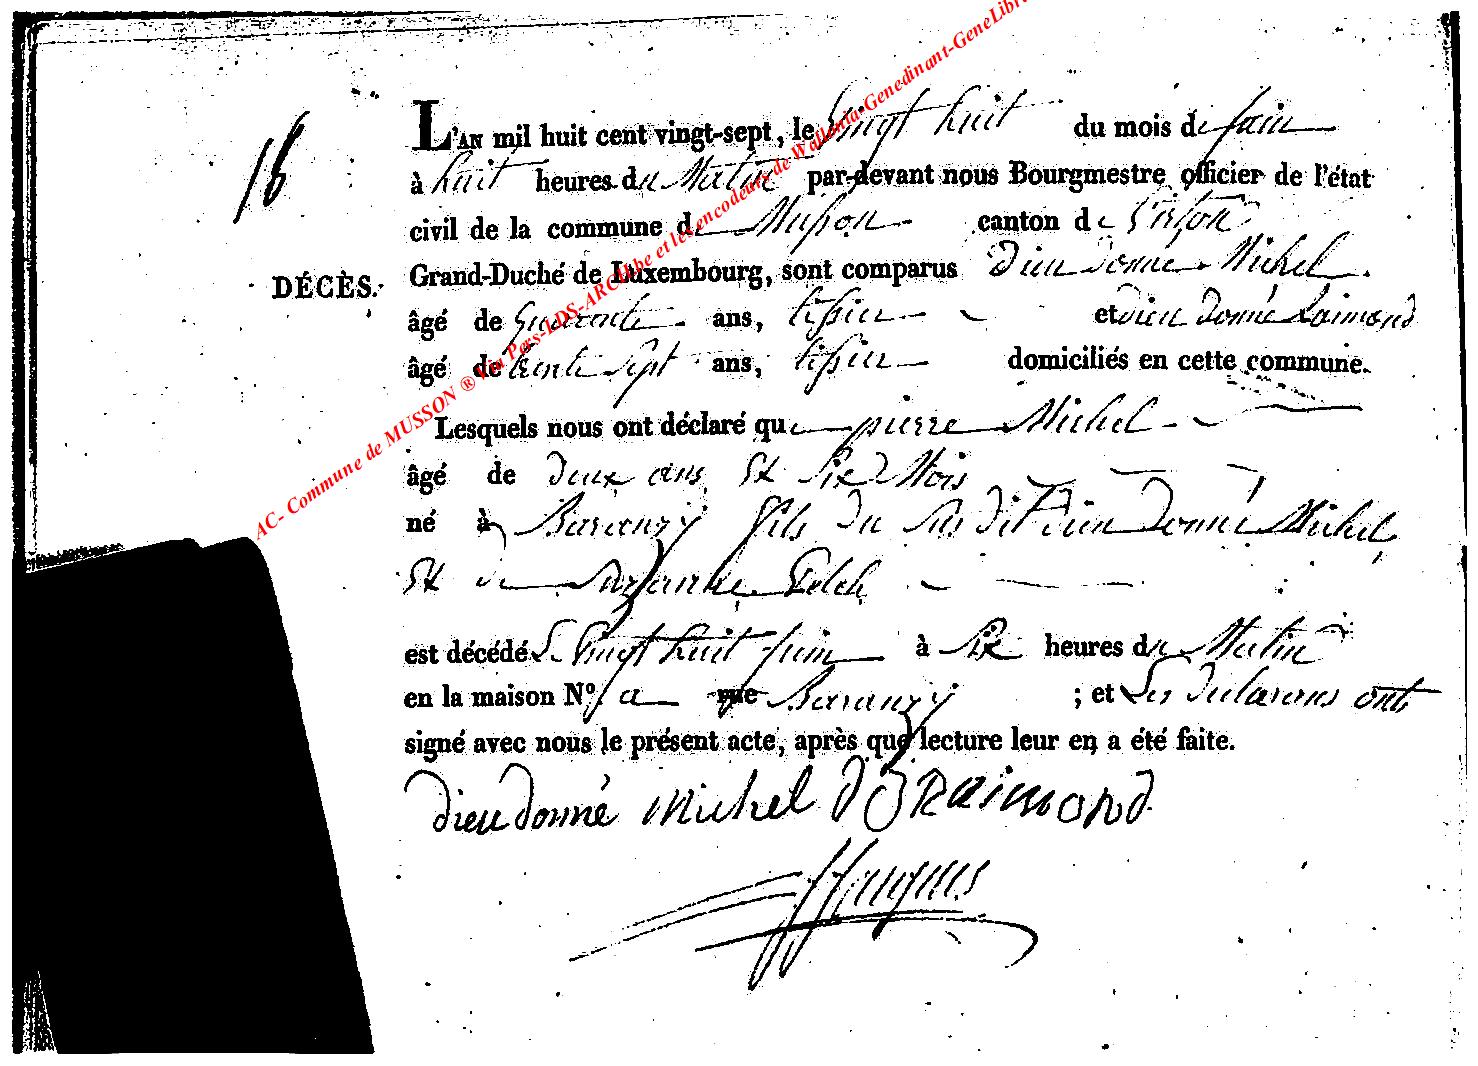 AC- Commune de MUSSON ® Via Pers-LDS-ARCH.be et les encodeurs de Wallonia-Genedinant-GeneLibr
L'AN mil huit cent vingt-sept, le vingt huit du mois de juin
18
à huit heures du Matin par-devant nous Bourgmestre officier de l'état
civil de la commune de Musson canton de Virton
DÉCÈS. Grand-Duché de Luxembourg, sont comparus dieu donné Michel
âgé de quarante ans, tissier et dieu donné Raimond
âgé de trente sept ans, tissier domiciliés en cette commune.
Lesquels nous ont déclaré que pierre Michel
âgé de deux ans et six Mois
né à Baranzy fils du sus dit dieu donné Michel
et de Suzanne
est décédé le vingt huit juin à six heures du Matin
en la maison Nº a rue Baranzy ; et les declarans ont
signé avec nous le présent acte, après que lecture leur en a été faite.
dieudonné Michel d Raimond